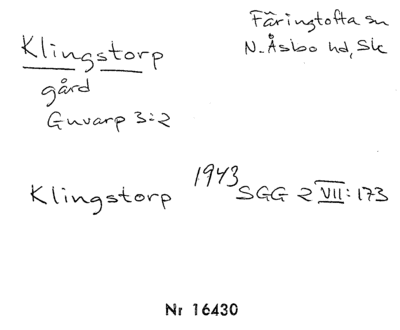 Klingstorp
Färingtofta sn
N. Åsbo hd, Sk
gård
Gnvarp 3:2
Klingstorp 1943 SGG 2 VII: 173
Nr 16430